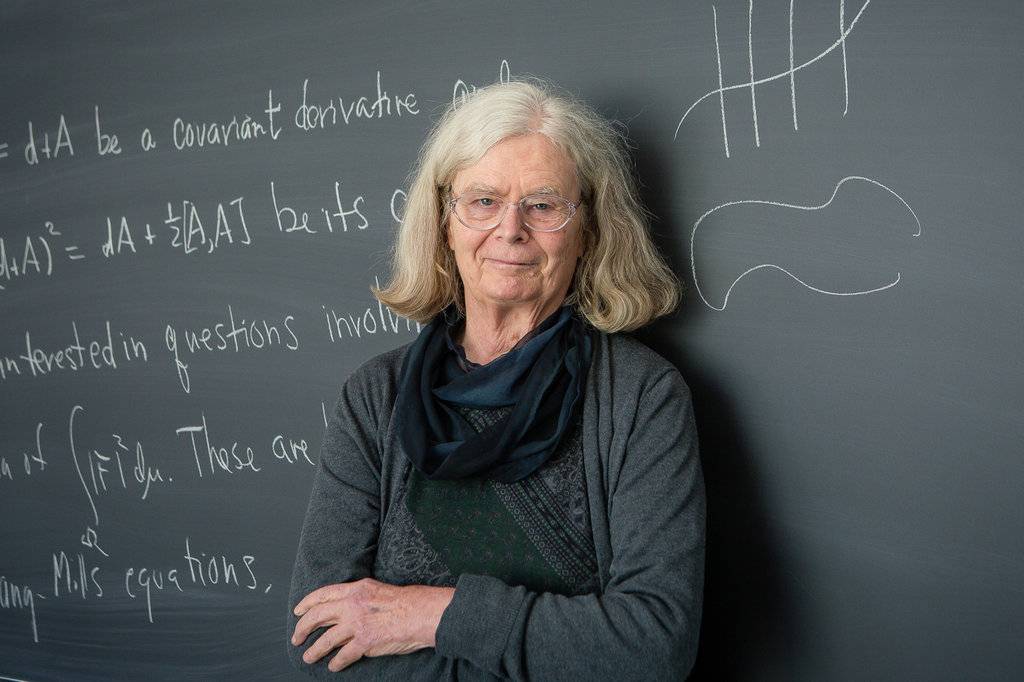 = d+A be a covariant derivative
(d+A)² = dA + ½[A,A] be its
interested in questions involv
of ∫|F|²dμ. These are
Ω
ang-Mills equations,